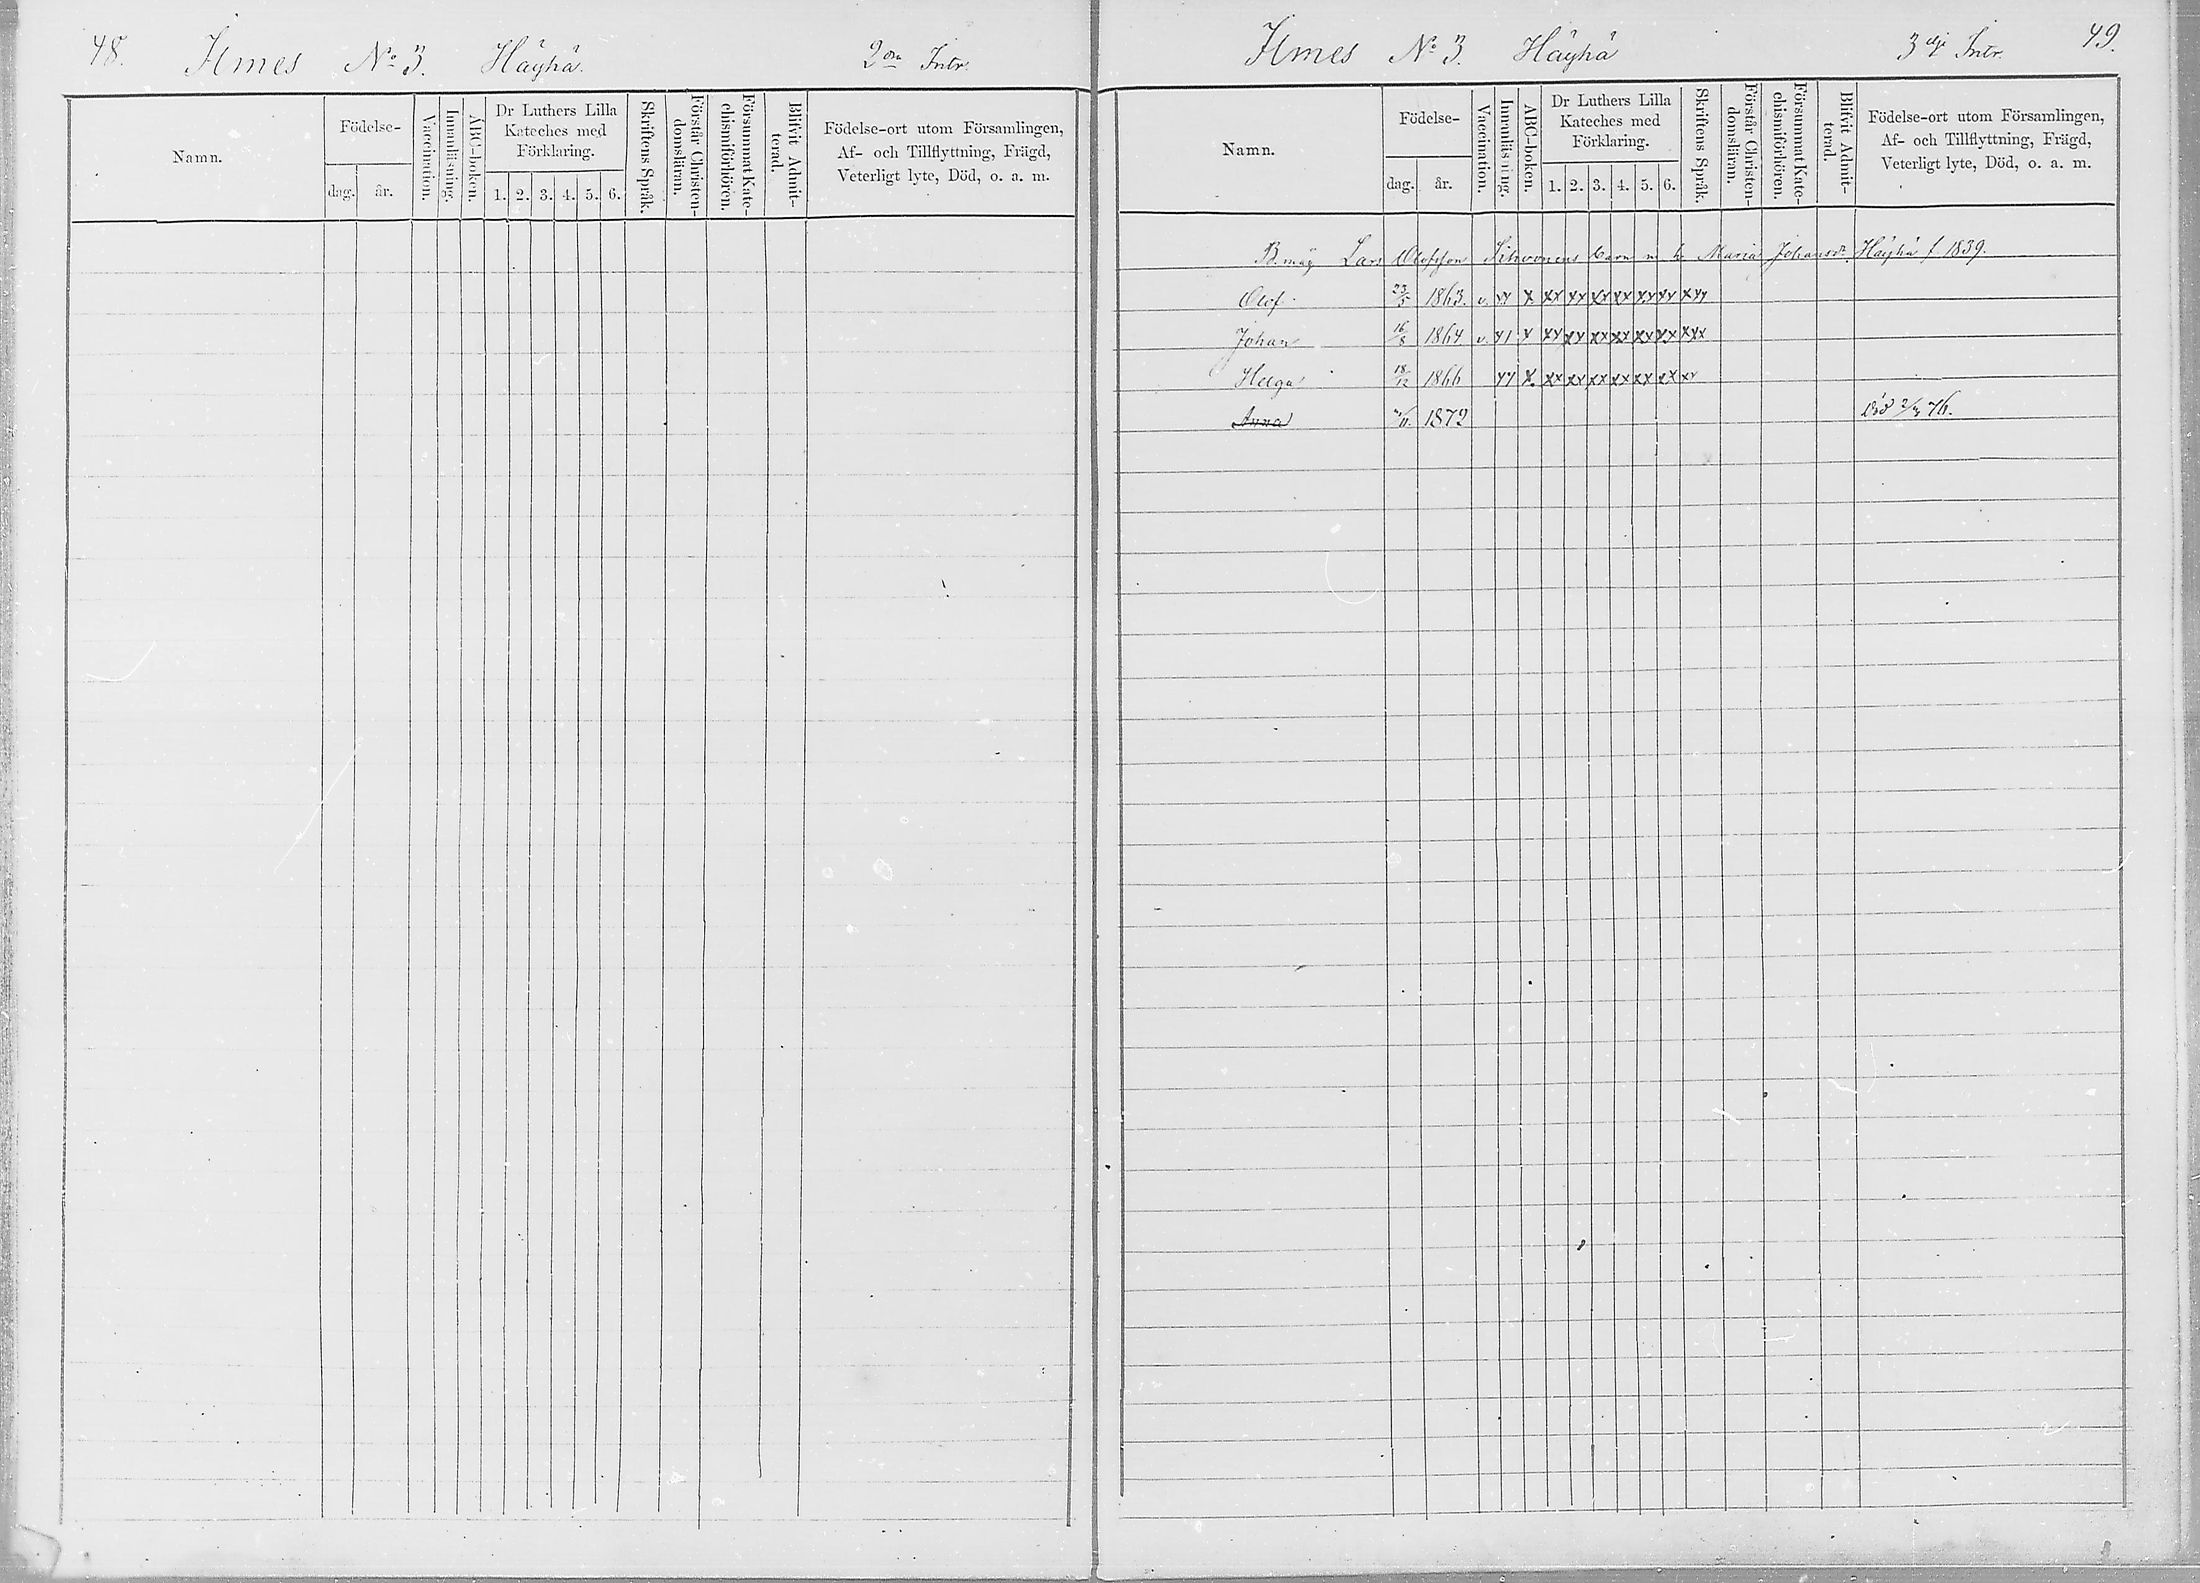 48. Ilmes No 3. Häyhä. 2dra Intr.
Namn.
Födelse-
dag. år.
Vaccination.
Innanläsning.
ABC-boken.
Dr Luthers Lilla
Kateches med
Förklaring.
1. 2. 3. 4. 5. 6.
Skriftens Språk.
Förstår Christen-
domsläran.
Försummat Kate-
chismiförhören.
Blifvit Admit-
terad.
Födelse-ort utom Församlingen,
Af- och Tillflyttning, Frägd,
Veterligt lyte, Död, o. a. m.
Ilmes No 3. Häyhä 3dje Intr. 49.
Namn.
Födelse-
dag. år.
Vaccination.
Innanläsning.
ABC-boken.
Dr Luthers Lilla
Kateches med
Förklaring.
1. 2. 3. 4. 5. 6.
Skriftens Språk.
Förstår Christen-
domsläran.
Försummat Kate-
chismiförhören.
Blifvit Admit-
terad.
Födelse-ort utom Församlingen,
Af- och Tillflyttning, Frägd,
Veterligt lyte, Död, o. a. m.
B. måg Lars Olofsson Sihvonens barn m h Maria Johansdr Häyhä f. 1839.
Olof 23/5 1863. v. xx x xx xx xx xx xx xx xxx
Johan 16/8 1864 v. x xx xx xx xx xx xx xxx
Helga 18/12 1866 xx x xx xx xx xx xx xx xx
Anna 1872 död 76.